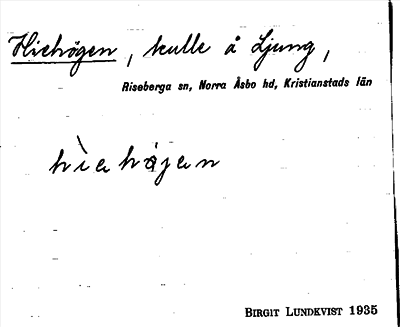 Hiehögen, kulle å Ljung,
Riseberga sn, Norra Åsbo hd, Kristianstads län
hìehöjen
BIRGIT LUNDKVIST 1935